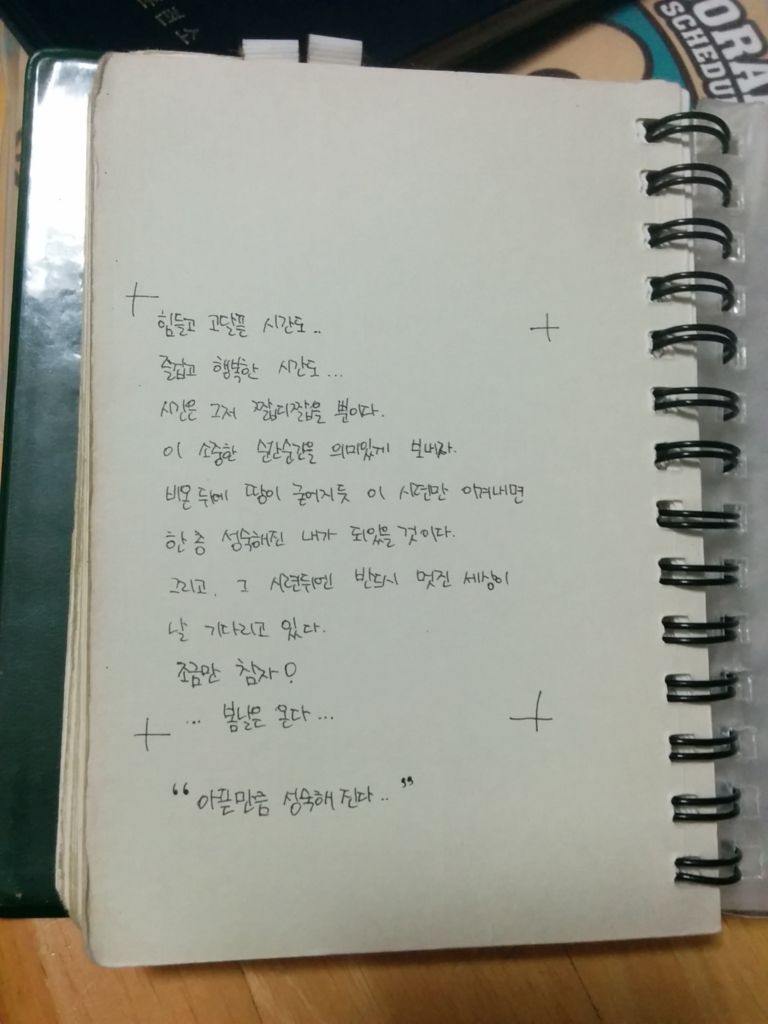 련소
ORA
SCHEDU
힘들고 고달플 시간도..
즐겁고 행복한 시간도...
시간은 그저 짧디짧을 뿐이다.
이 소중한 순간순간을 의미있게 보내자.
비온뒤에 땅이 굳어지듯 이 시련만 이겨내면
한층 성숙해진 내가 되있을 것이다.
그리고, 그 시련뒤엔 반드시 멋진 세상이
날 기다리고 있다.
조금만 참자!
... 봄날은 온다...
“아픈만큼 성숙해진다..”